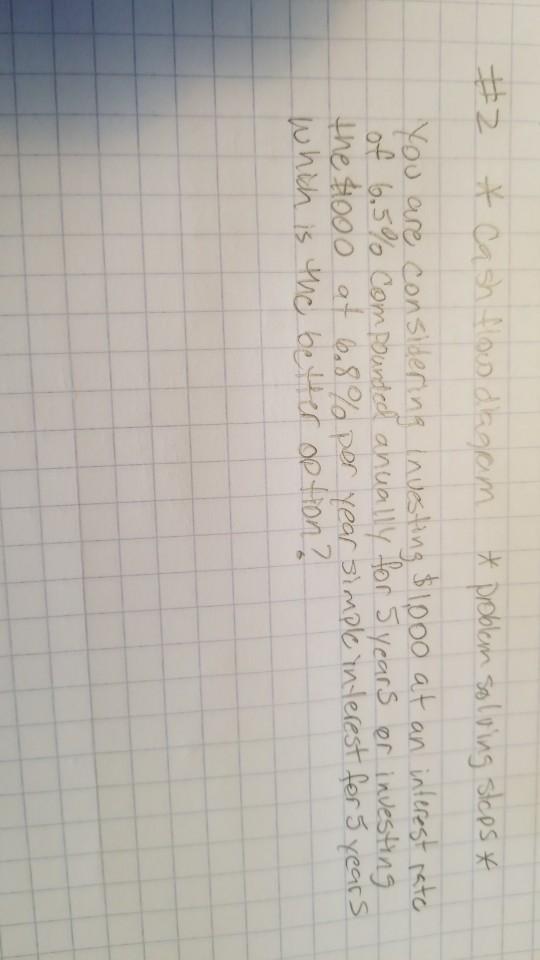 #2 * Cash flow diagram * problem solving steps *
You are considering investing $1,000 at an interest rate
of 6.5% compounded anually for 5 years or investing
the $1000 at 6.8% per year simple interest for 5 years
which is the better option?